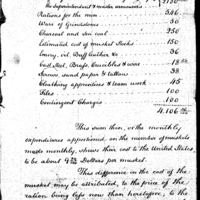 Superintendents & master armourers
Rations for the men 540
Wear of Grindstones 50
Charcoal and Sea coal 250
Estimated cost of musket stocks 150
Emory, oil, Buff leather &c 60
Cast Steel, Brass, Crucibles & wires 18
Screws, sand paper & tallow 38
Cloathing apprentices & team work 45
Files
Contingent Charges 100
4.106
This sum then, or the monthly
expenditures apportioned on the number of muskets
made monthly, shews their cost to the United States
to be about Dollars per musket.
This difference in the cost of the
musket may be attributed, to the price of the
ration being less now than heretofore, to the